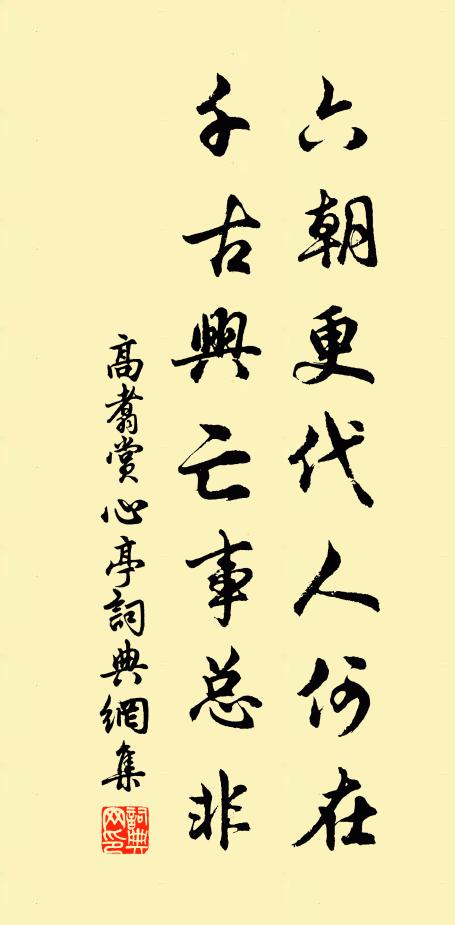 六朝更代人何在
千古興亡事总非
高翥赏心亭詞典網集
詞典网印